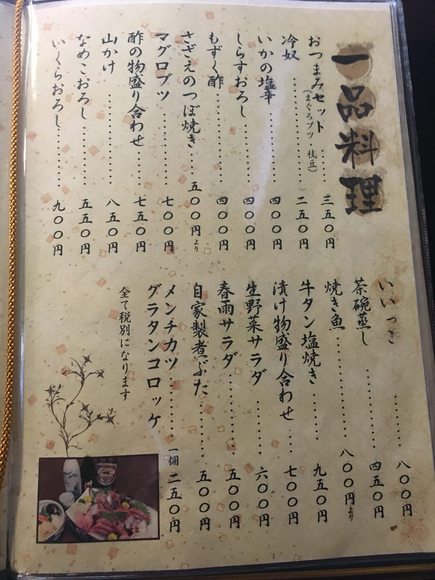 一品料理
おつまみセット……三五〇円
(まぐろブツ・枝豆)
冷奴……二五〇円
いかの塩辛……四〇〇円
しらすおろし……四〇〇円
もずく酢……四〇〇円
さざえのつぼ焼き……五〇〇円より
マグロブツ……七〇〇円
酢の物盛り合わせ……七五〇円
山かけ……八五〇円
なめこおろし……五五〇円
いくらおろし……九〇〇円
いいっこ……八〇〇円
茶碗蒸し……四五〇円
焼き魚……八〇〇円より
牛タン塩焼き……九五〇円
漬け物盛り合わせ……七〇〇円
生野菜サラダ……六〇〇円
春雨サラダ……五〇〇円
自家製煮ぶた……五〇〇円
メンチカツ……一個二五〇円
グラタンコロッケ
全て税別になります